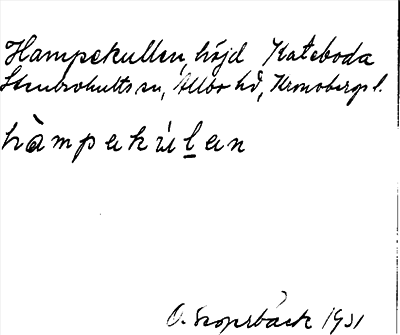 Hampekullen, höjd Kateboda
Stenbrohults sn, Allbo hd, Kronobergs l.
hàmpekúlen
1931